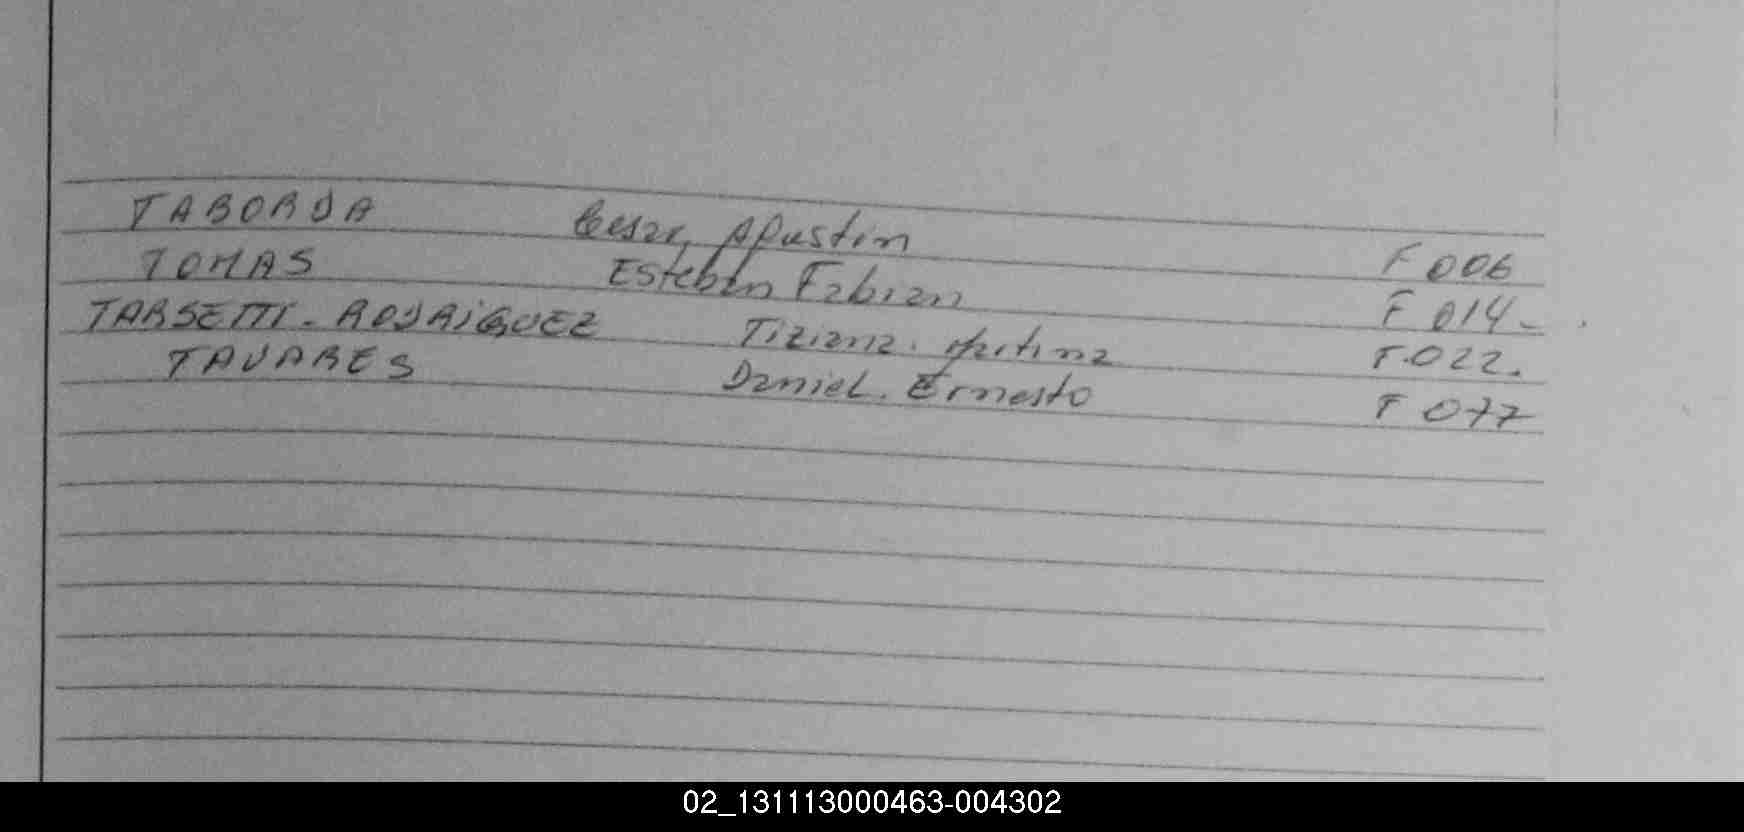 TABORDA Cesar, Agustin F 006
TOMAS Esteban Fabian F 014-
TARSETTI - RODRIGUEZ Tiziana. Martina F.022.
TAVARES Daniel. Ernesto F 077
02_131113000463-004302